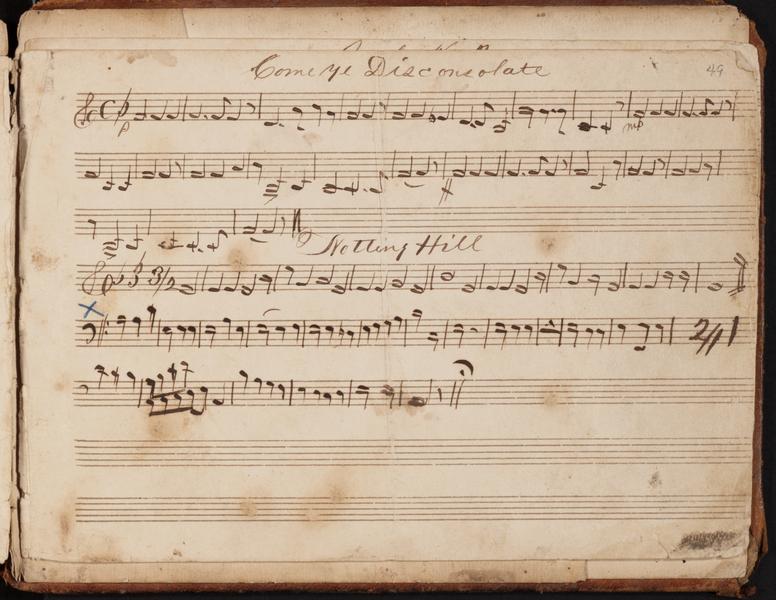 Come ye Disconsolate
49
p
mp
Notting Hill
3/2